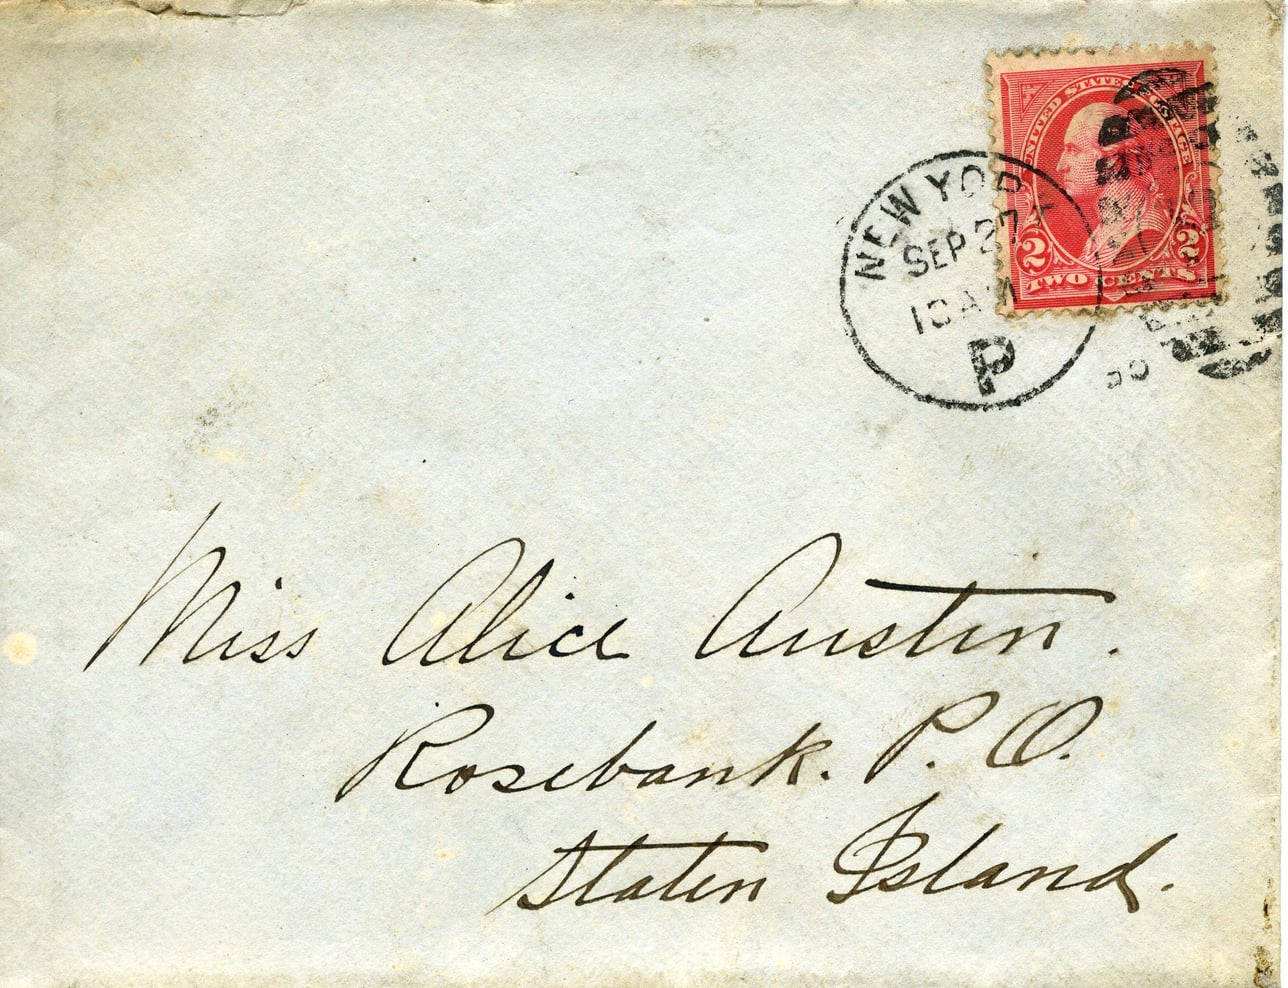 UNITED STATES POSTAGE
2 2
TWO CENTS
NEW YORK
SEP 27
10 AM
P
Miss Alice Austin.
Rosebank. P. O.
Staten Island.